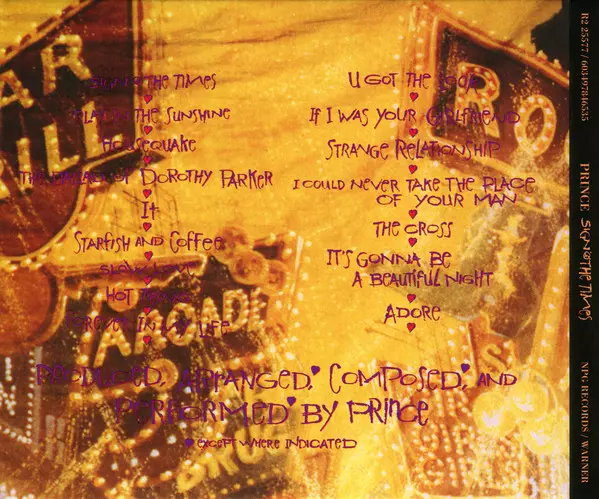 SIGN O THE TIMES
PLAY IN THE SUNSHINE
HOUSEQUAKE
THE BALLAD OF DOROTHY PARKER
IT
STARFISH AND COFFEE
SLOW LOVE
HOT THING
FOREVER IN MY LIFE
U GOT THE LOOK
IF I WAS YOUR GIRLFRIEND
STRANGE RELATIONSHIP
I COULD NEVER TAKE THE PLACE
OF YOUR MAN
THE CROSS
IT'S GONNA BE
A BEAUTIFUL NIGHT
ADORE
PRODUCED, ARRANGED, COMPOSED, AND
PERFORMED BY PRINCE
EXCEPT WHERE INDICATED
AR
ILL
RO
ARCADE
DRUG
GIRLS
R2 25577 / 603497846535
PRINCE SIGN O THE TIMES
NPG RECORDS / WARNER